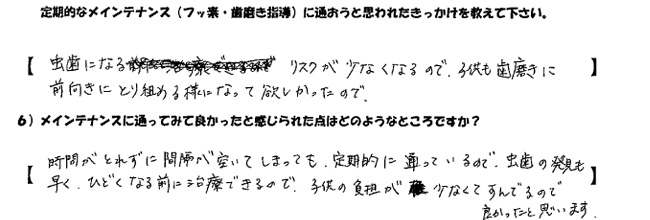 定期的なメインテナンス（フッ素・歯磨き指導）に通おうと思われたきっかけを教えて下さい。
【 虫歯になる リスクが少なくなるので、子供も歯磨きに 】
前向きにとり組める様になって欲しかったので。
6）メインテナンスに通ってみて良かったと感じられた点はどのようなところですか？
時間がとれずに間隔が空いてしまっても、定期的に通っているので、虫歯の発見も
【 早く、ひどくなる前に治療できるので、子供の負担が 少なくてすんでるので 】
良かったと思います。